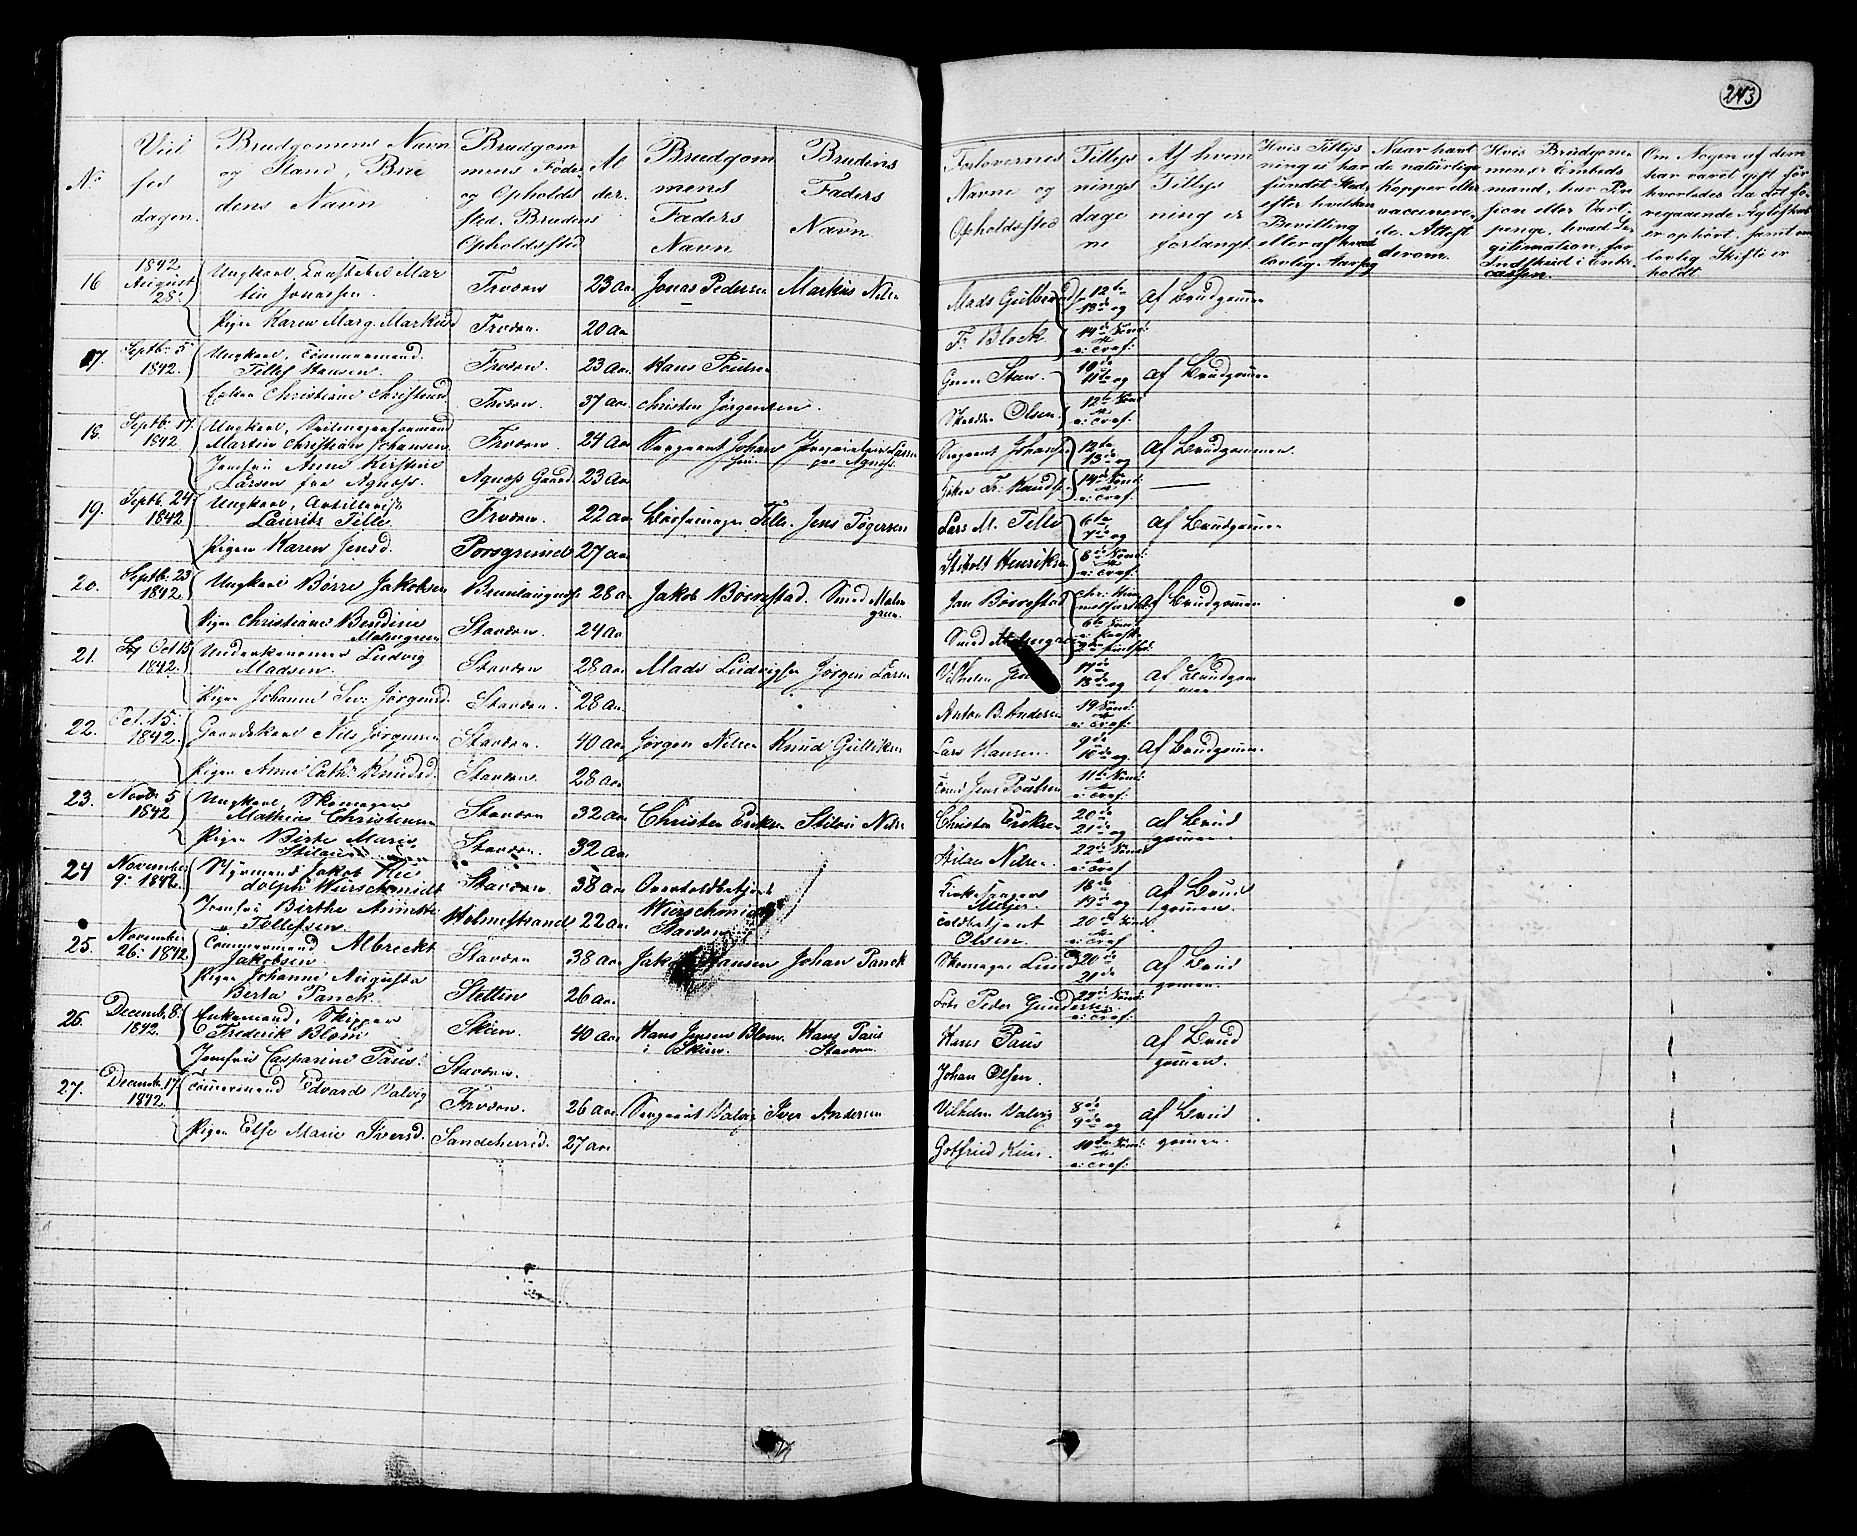 243
No
Viel
ses
dagen.
Brudgomens Navn
og Stand, Bru
dens Navn
Brudgom
mens Føde-
og Opholds
sted. Brudens
Opholdssted
Al
der.
Brudgom
mens
Faders
Navn
Brudens
Faders
Navn.
Forlovernes
Navne og
Opholdssted
Tillys
nings
dage
ne
Af hvem
Tillys
ning er
forlangt
Hvis Tillys
ning ei har
fundet Sted,
efter hvilken
Bevilling
eller af hvad
lovlig Aarsag
Naar havt
de naturlige
Kopper eller
vaccinere
de. Attest
derom.
Hvis Brudgom-
men er Embeds
mand, har Pen
sion eller Vart-
penge, hvad Le
gitimation, for
Indskud i Enke
cassen.
Om Nogen af dem
har været gift før
hvorledes da det fo
regaaende Ægteskab
er ophørt, samt om
lovlig Skifte er
holdt.
16 1842 August 28: Ungkarl, Mar
tin Jonassen. Fredrn. 23 Aar Jonas Pedersen Markus Nilsen Mads Gulbrand 12te 13de og af Brudgommen
Pigen Karen Marg. Markusd. Fredrn. 20 Aar F. Block 14de Sønd:
17. Septb: 5 1842. Ungkarl, Tømmermand.
Tellef Hansen. Fredrn. 23 Aar Hans Poulsen 10de 11te og af Brudgommen
Enken Christiane Christensd Fredrn. 37 Aar Christen Jørgensen. Olsen. 12te Sønd
18. Septb: 17 1842 Ungkarl, Seilmagersvend
Martin Christian Johansen Fredrn. 24 Aar Sergeant Johan
sen Larsen
paa Agnæs. Sergeant Johansen 12te 13de og af Brudgommen.
Jomfru Anne Kirstine
Larsen fra Agnæs. Agnæs Gaard 23 Aar Fr. Knudsen 14de Sønd:
19. Septb. 24 1842 Ungkarl, Artillerist
Laurits Telle Fredrn. 22 Aar Telle. Jens Tøgersen Lars M. Telle 6te 7de og af Brudgommen
Pigen Karen Jensd. Porsgrund 27 Aar Henriksen 8de Sønd:
20. Septb: 23 1842. Ungkarl Børre Jakobsen Brunlaugnæs 28 A Jakob Børrestad. Smed Malm
green. Jan Børrestad af Brudgommen
Pigen Christiane Bendine
Malmgreen Stavern. 24 Aar Smed Malmgreen 6te Sønd:
21. Oct 15 1842. Underkanoneer Ludvig
Madsen. Stavern 28 Aar Mads Ludvigsen Jørgen Larsen Vilhelm 17de 18de og af Brudgom
men
Pigen Johanne Sev: Jørgensd. Stavern. 28 Aar Anton B. Andersen 19 Sønd:
22. Oct. 15: 1842. Gaardskarl Nils Jørgensen Stavern. 40 Aar Jørgen Nilsen Knud Gulliksen Lars Hansen. 9de 10de og af Brudgommen
Pigen Anne Cath: Knudsd. Stavern 28 Aar Jens Poulsen 11te Sønd:
23. Novbr 5 1842 Ungkarl, Skomager
Mathias Christensen Stavern 32 Aar Christen Eriksen Stilau Nilsen Christen Eriksen 20de 21de og af Brud
gommen
Pigen Birte Marie
Stilausd. Stavern. 32 Aar Stilau Nilsen. 22de Sønd
24 November 9: 1842. Styrmand Jakob Ru
dolph Wierschmidt Stavern. 38 Aar Overtoldbetjent
Wierschmidt
Stavern Kirkesanger
18de 19de og af Brud
gommen.
Jomfru Birthe Annette
Tollefsen Holmestrand 22 Aar Toldbetjent
Olsen. 20de Sønd.
25. November 26: 1842 Tømmermand Albreckt
Jakobsen. Stavern 38 Aar Jakob Hansen Johan Panck Skomager Lund 20de 21de af Brud
gommen.
Pigen Johanne Augusta
Berta Panck Stettin 26 Aar Peder Gundersen 22de Sønd:
26. Decemb. 8: 1842. Enkemand, Skipper
Frederik Blom Skien. 40 Aar Hans Jensen Blom
i Skien. Hans Paus
Stavern. Hans Paus af Brud
gommen.
Jomfru Casparine Paus. Stavern. Johan Olsen.
27. Decemb. 17 1842. Tømmermand Edvard Valvig Fredrn. 26 Aar Sergeant Valvig Iver Andersen Vilhelm Valvig 8de 9de og af Brud
gommen.
Pigen Else Marie Iversd. Sandeherred. 27 Aar Gotfried 10de Sønd: